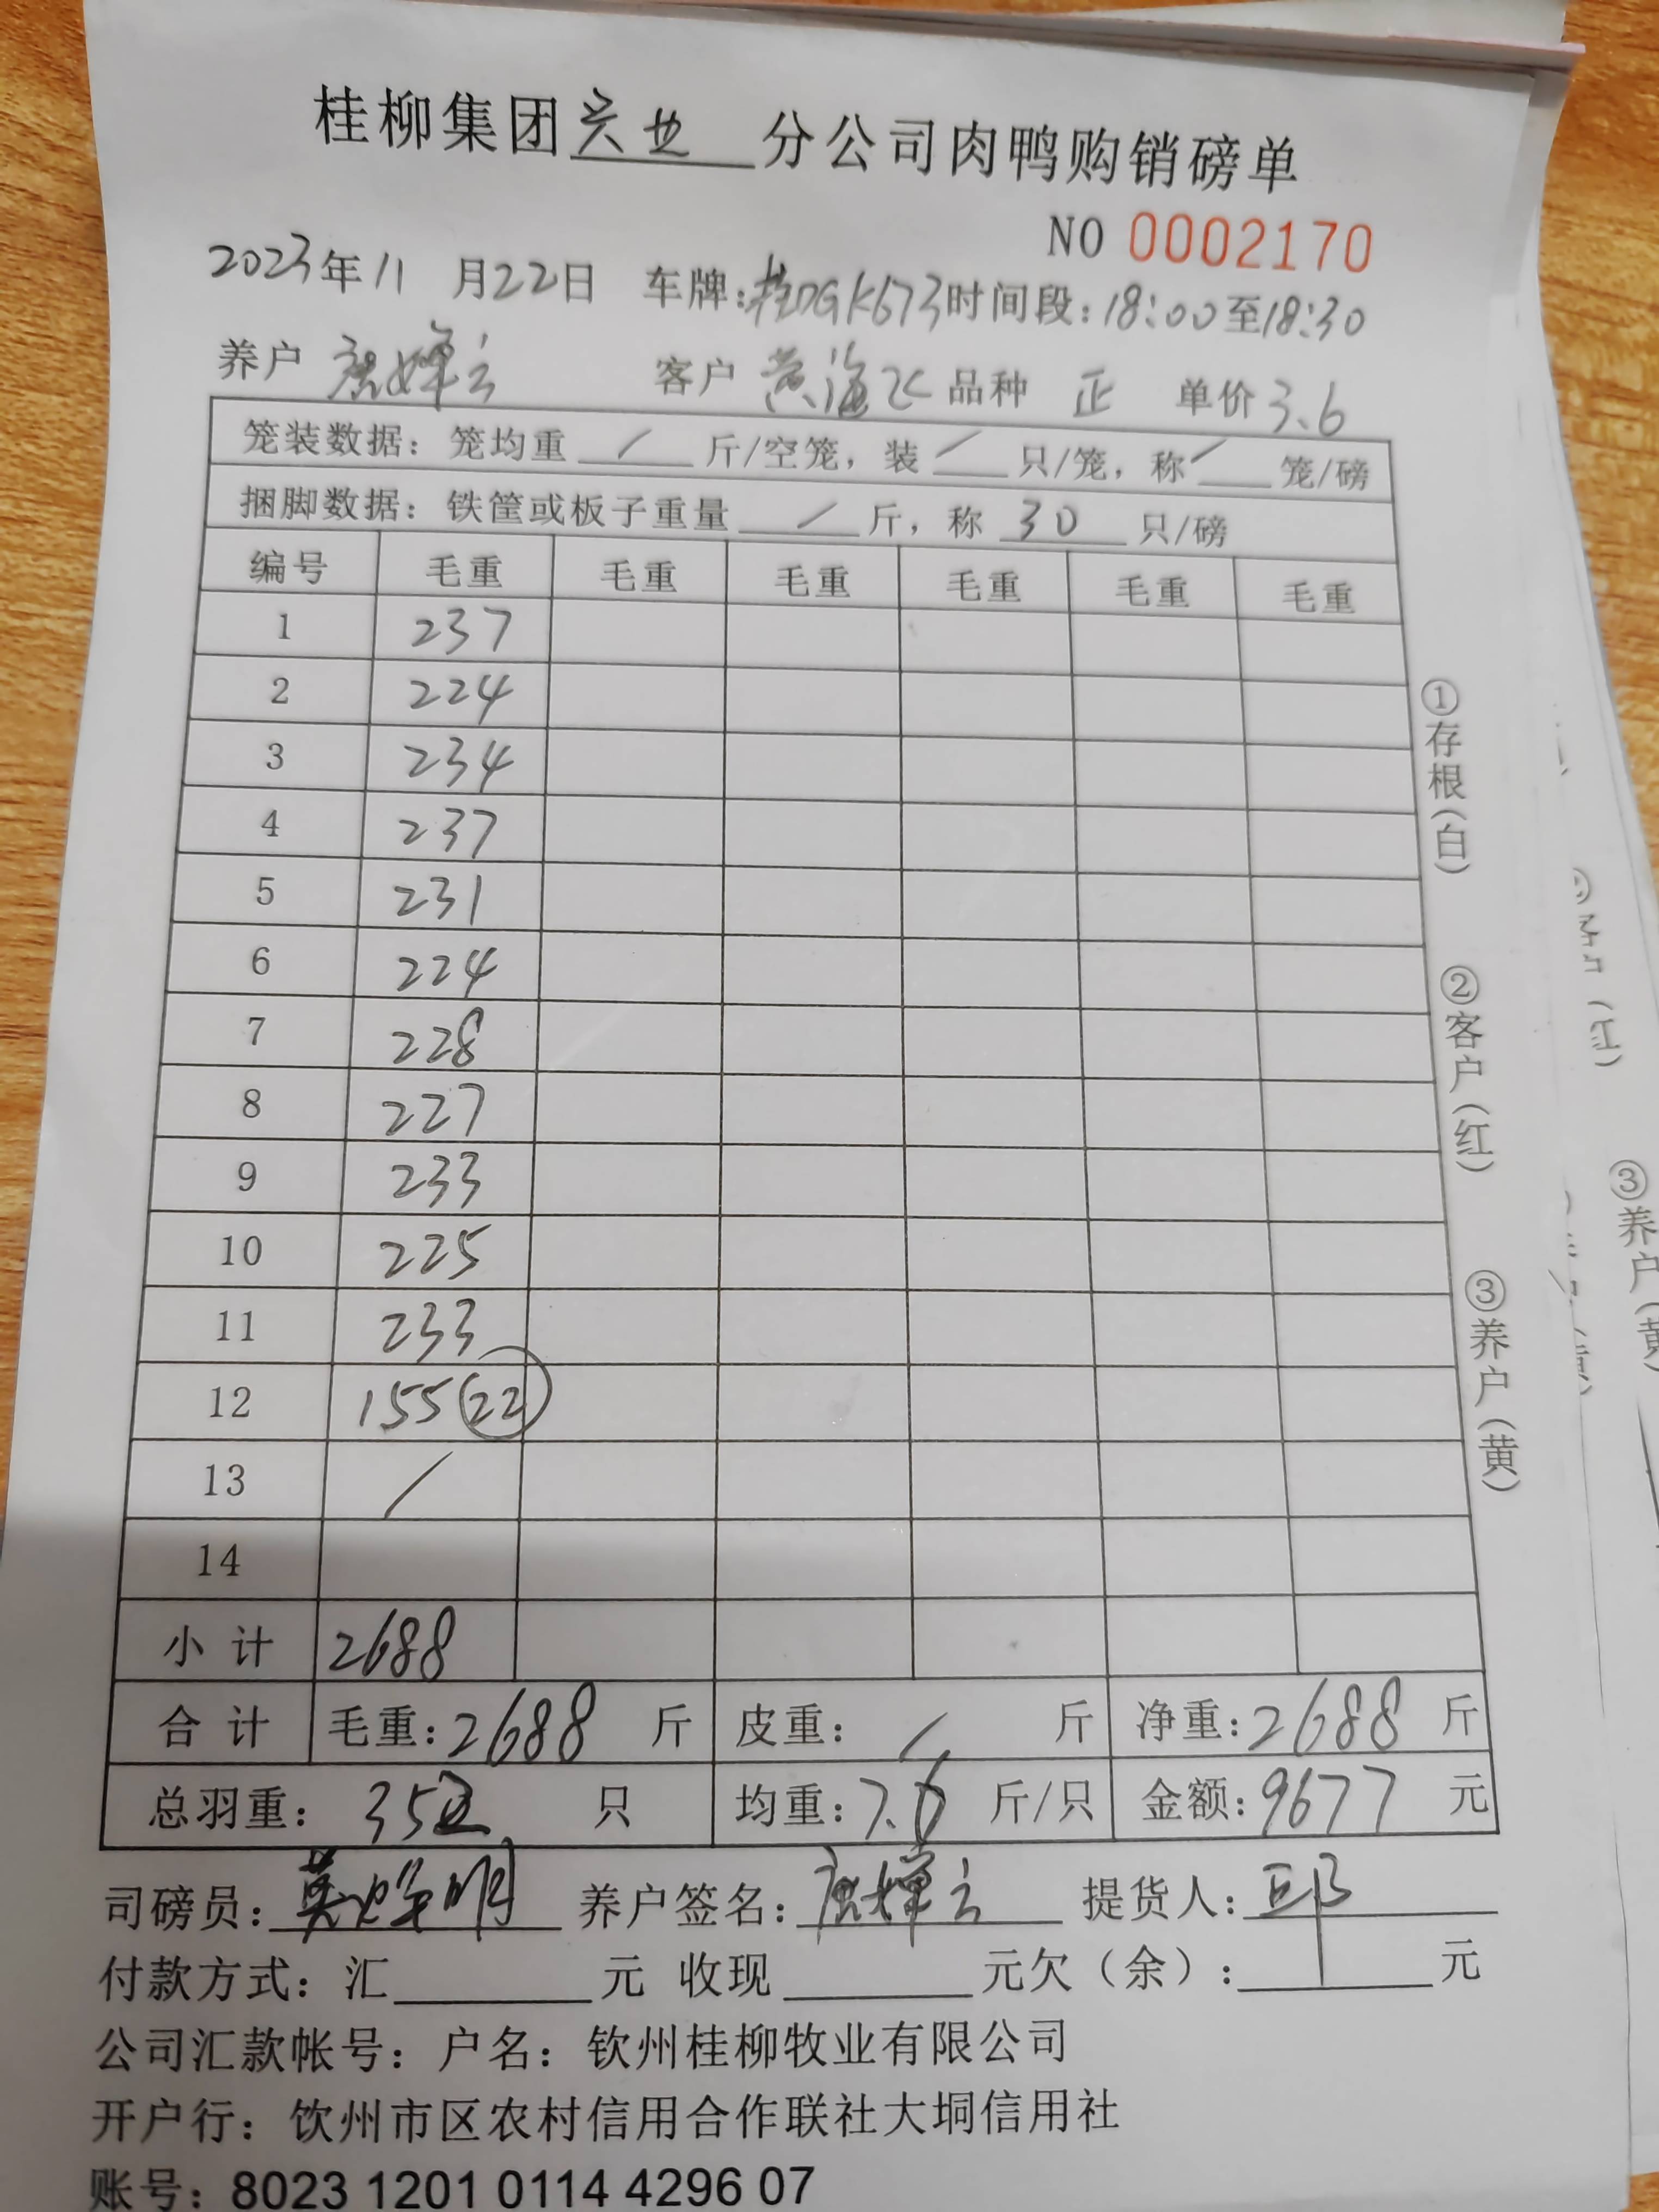 桂柳集团兴业分公司肉鸭购销磅单
NO 0002170
2023年11月22日 车牌:桂DGK673时间段:18:00至18:30
养户 婵云 客户 黄海飞 品种 正 单价 3.6
笼装数据：笼均重 / 斤/空笼，装 / 只/笼，称 / 笼/磅
捆脚数据：铁筐或板子重量 / 斤，称 30 只/磅
编号 毛重 毛重 毛重 毛重 毛重 毛重
1 237
2 224
3 234
4 237
5 231
6 224
7 228
8 227
9 233
10 225
11 233
12 155 (22)
13 /
14
小计 2688
合计 毛重:2688 斤 皮重: / 斤 净重:2688 斤
总羽重: 352 只 均重:7.6 斤/只 金额:9677 元
司磅员: 明 养户签名: 婵云 提货人:
付款方式：汇 元 收现 元欠（余）: 元
公司汇款帐号：户名：钦州桂柳牧业有限公司
开户行：饮州市区农村信用合作联社大垌信用社
账号：8023 1201 0114 4296 07
①存根(白) ②客户(红) ③养户(黄)
③养户(黄